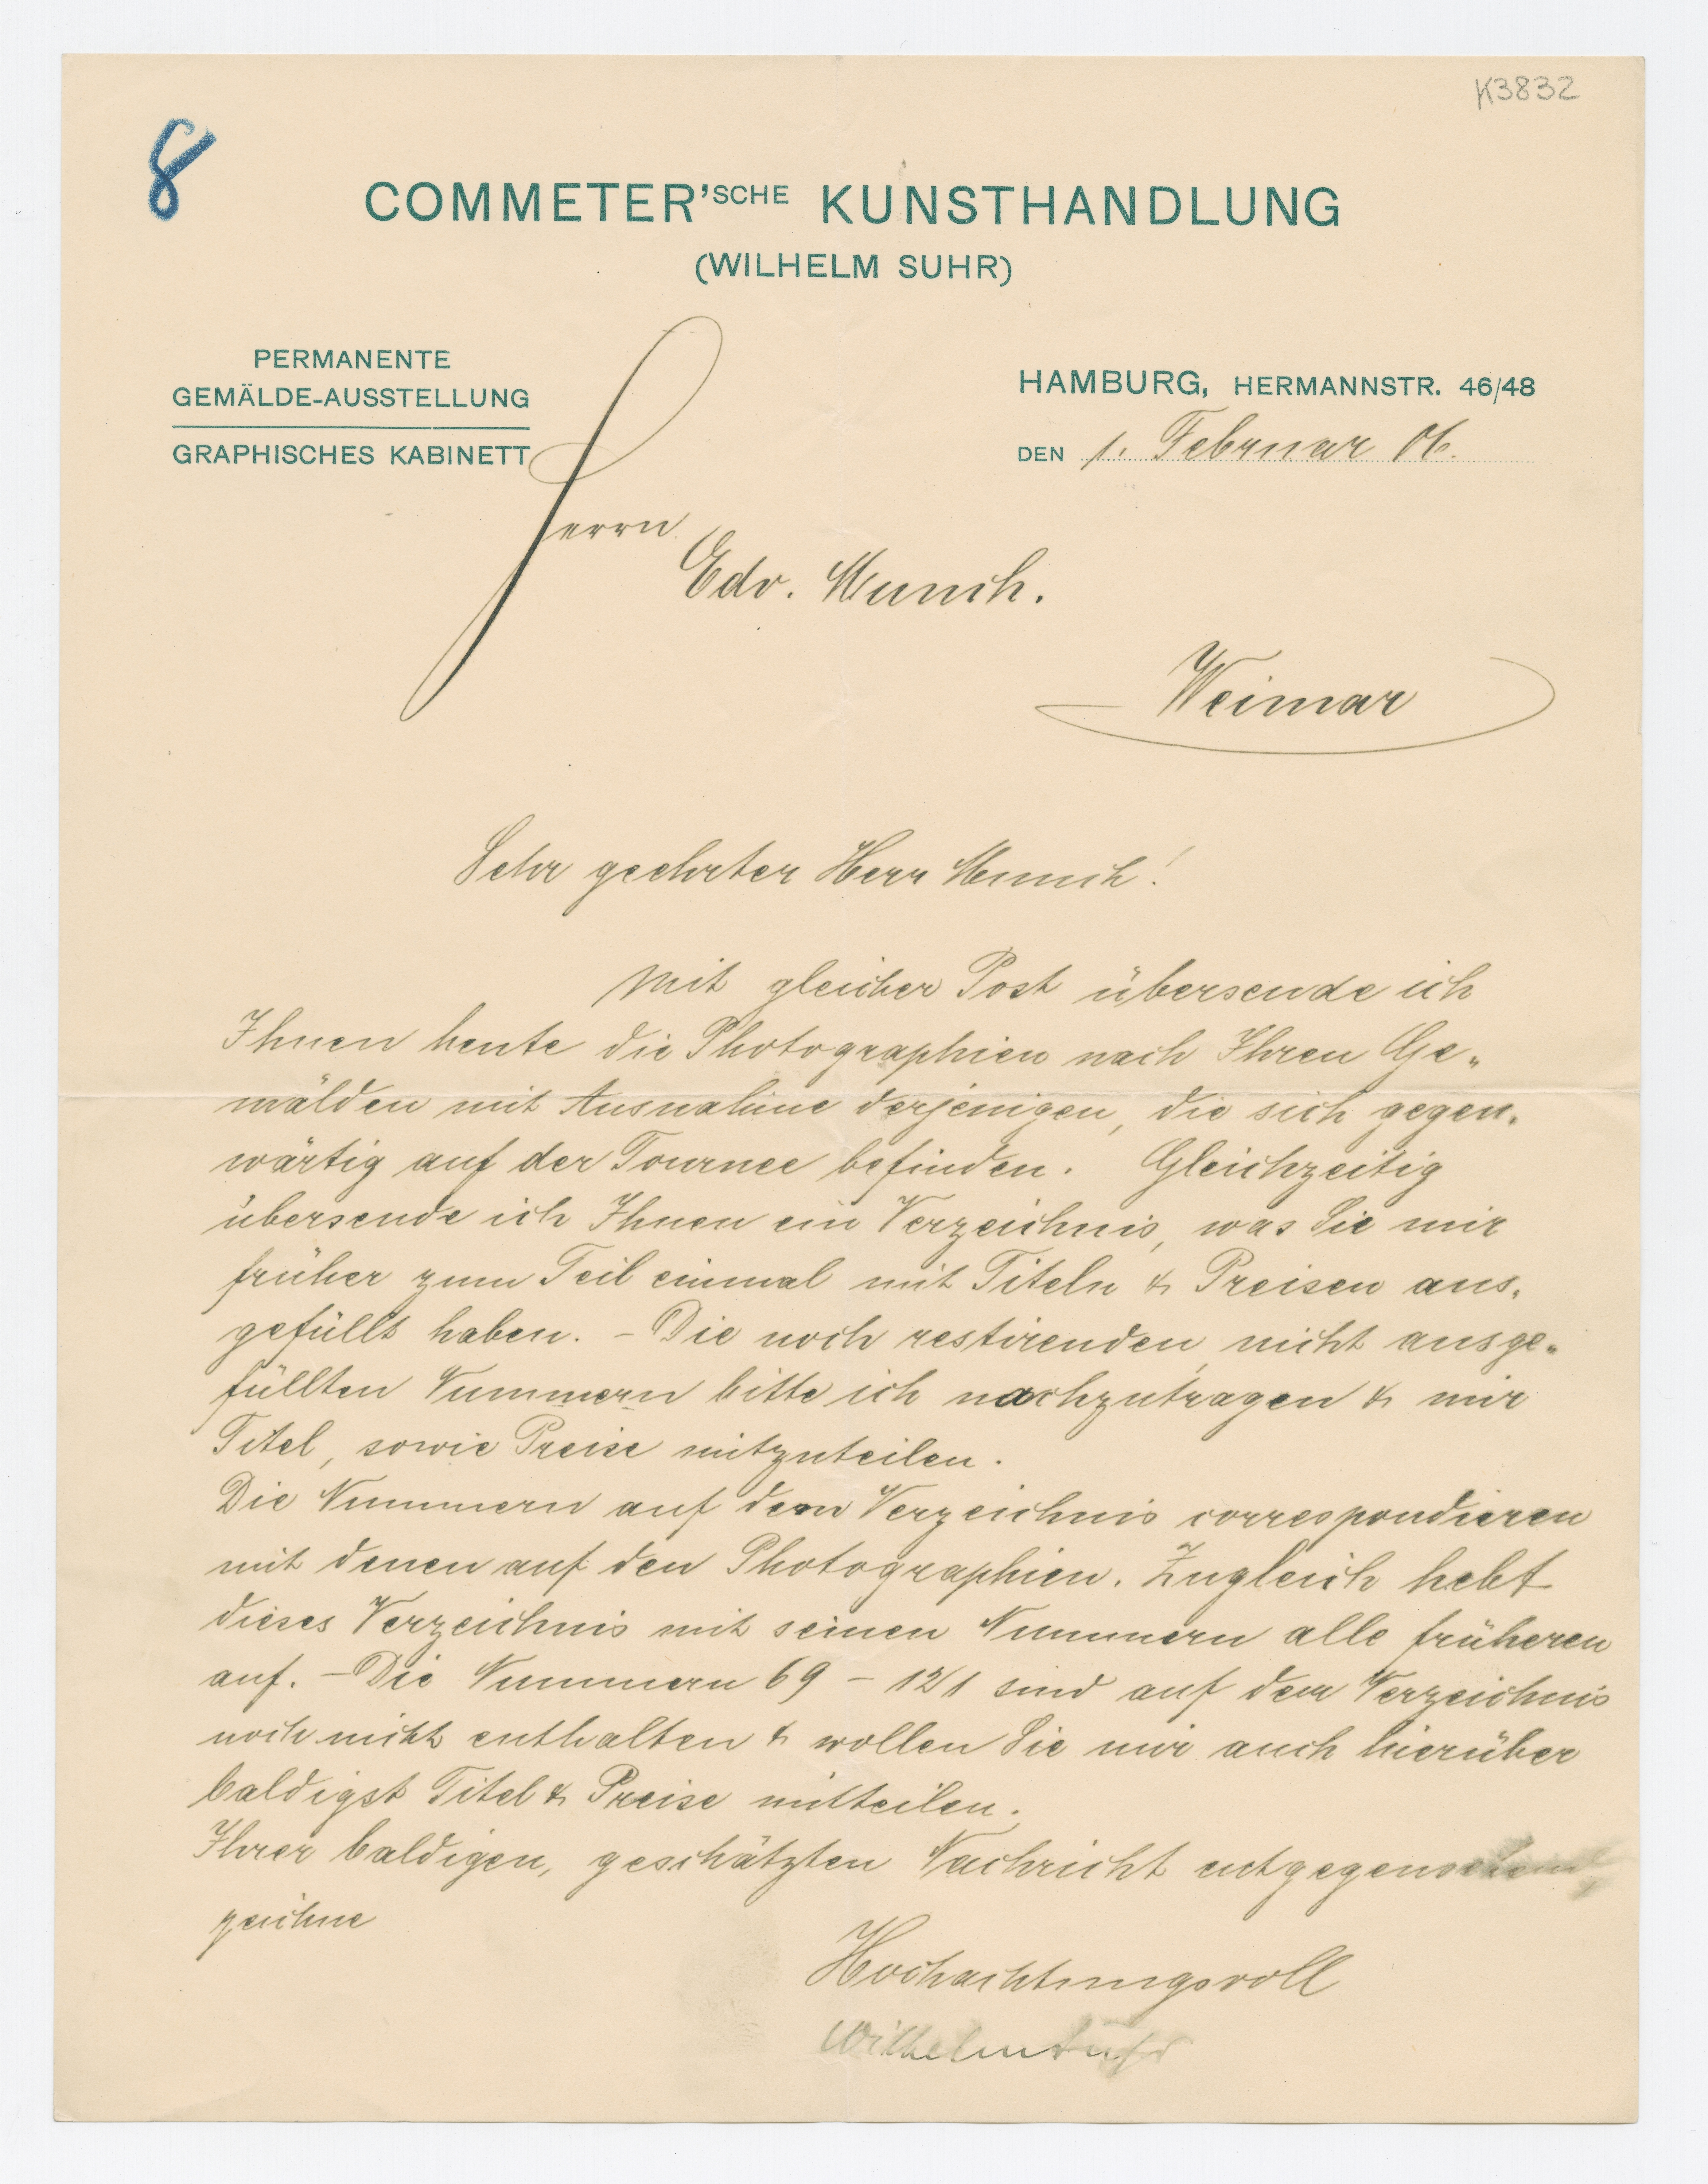 K3832
8
COMMETER'SCHE KUNSTHANDLUNG
(WILHELM SUHR)
PERMANENTE
GEMÄLDE-AUSSTELLUNG
GRAPHISCHES KABINETT
HAMBURG, HERMANNSTR. 46/48
DEN 1. Februar 06.
Herrn
Edv. Munch.
Weimar
Sehr geehrter Herr Munch!
Mit gleicher Post übersende ich
Ihnen heute die Photographien nach Ihren Ge-
mälden mit Ausnahme derjenigen, die sich gegen-
wärtig auf der Tournee befinden. Gleichzeitig
übersende ich Ihnen ein Verzeichnis, was Sie mir
früher zum Teil einmal mit Titeln & Preisen aus-
gefüllt haben. - Die noch restirenden nicht ausge-
füllten Nummern bitte ich nachzutragen & mir
Titel, sowie Preise mitzuteilen.
Die Nummern auf dem Verzeichnis correspondieren
mit denen auf den Photographien. Zugleich hebt
dieses Verzeichnis mit seinen Nummern alle früheren
auf. - Die Nummern 69 - 121 sind auf dem Verzeichnis
noch nicht enthalten & wollen Sie mir auch hierüber
baldigst Titel & Preise mitteilen.
Ihrer baldigen, geschätzten Nachricht entgegensehend,
zeichne
Hochachtungsvoll
Wilhelm Suhr